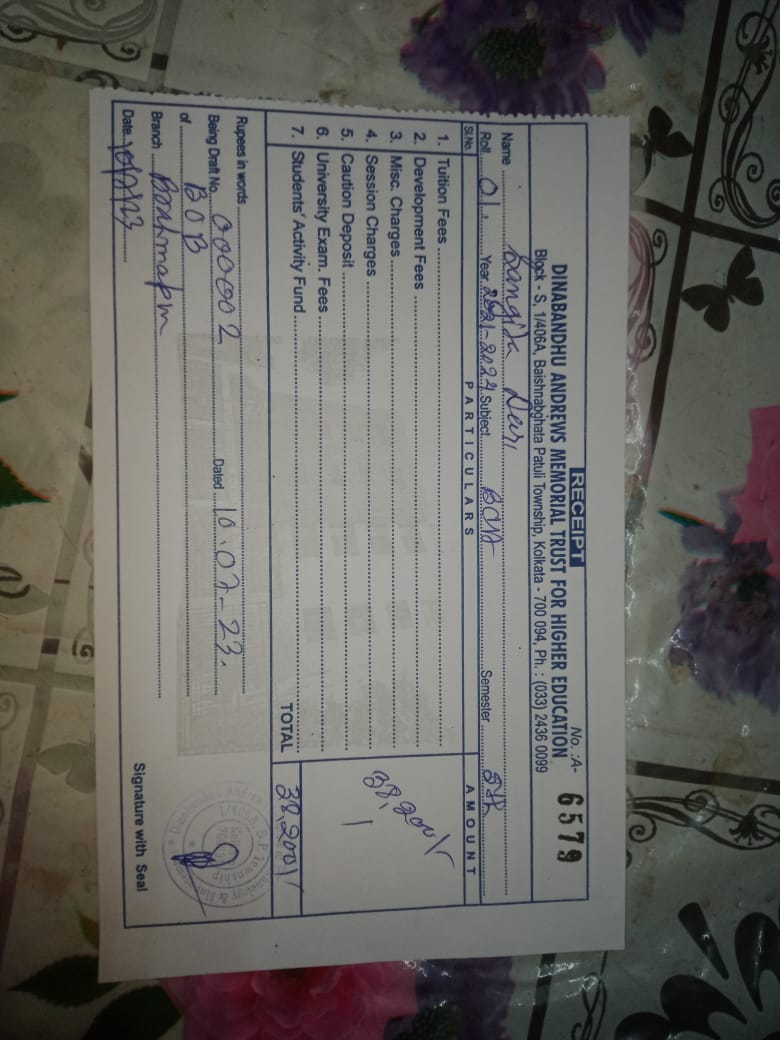 RECEIPT
No. :A- 6579
DINABANDHU ANDREWS MEMORIAL TRUST FOR HIGHER EDUCATION
Block - S, 1/406A, Baishnabghata Patuli Township, Kolkata - 700 094, Ph. : (033) 2436 0099
Name
Roll 01. Year 2021-2024 Subject Semester 5th
Sl.No. PARTICULARS AMOUNT
1. Tuition Fees
2. Development Fees
3. Misc. Charges
4. Session Charges
5. Caution Deposit
6. University Exam. Fees
7. Students' Activity Fund
38,200/-
TOTAL 38,200/-
Rupees in words
Being Draft No. 000002 Dated 10.07-23.
of BOB
Branch
Date
Signature with Seal